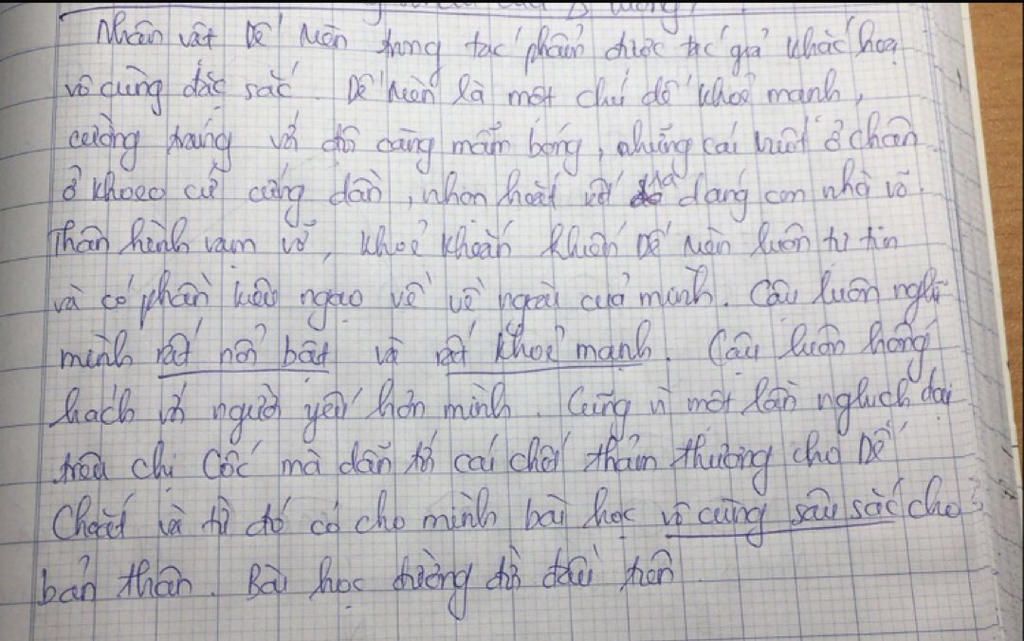 Nhân vật Dế Mèn trong tác phẩm được tác giả khắc hoạ
vô cùng đặc sắc. Dế Mèn là một chú dế khoẻ mạnh,
cường tráng với đôi càng mẫm bóng, những cái vuốt ở chân
ở khoeo cứ cứng dần, nhọn hoắt với dáng con nhà võ.
Thân hình vạm vỡ, khoẻ khoắn khiến Dế Mèn luôn tự tin
và có phần kiêu ngạo về vẻ ngoài của mình. Cậu luôn nghĩ
mình rất nổi bật và rất khoẻ mạnh. Cậu luôn hống
hách với người yếu hơn mình. Cũng vì một lần nghịch dại
trêu chị Cốc mà dẫn tới cái chết thảm thương cho Dế
Choắt và từ đó có cho mình bài học vô cùng sâu sắc cho
bản thân. Bài học đường đời đầu tiên.